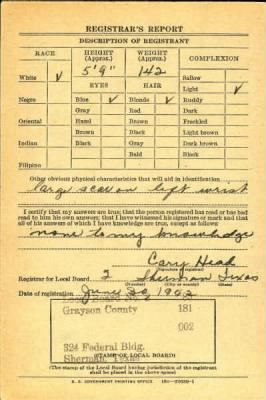 REGISTRAR'S REPORT
DESCRIPTION OF REGISTRANT
RACE HEIGHT (Approx.) WEIGHT (Approx.) COMPLEXION
White ✓ 5'9" 142 Sallow
EYES HAIR Light ✓
Negro Blue ✓ Blonde ✓ Ruddy
Gray Red Dark
Oriental Hazel Brown Freckled
Brown Black Light brown
Indian Black Gray Dark brown
Bald Black
Filipino
Other obvious physical characteristics that will aid in identification
large scar on left wrist
I certify that my answers are true; that the person registered has read or has had
read to him his own answers; that I have witnessed his signature or mark and that
all of his answers of which I have knowledge are true, except as follows:
none to my knowledge
(Signature of registrar)
Registrar for Local Board 2 Sherman Texas
(Number) (City or county) (State)
Date of registration June 30 1942
Grayson County 181
002
324 Federal Bldg.
Sherman, Texas
(STAMP OF LOCAL BOARD)
(The stamp of the Local Board having jurisdiction of the registrant
shall be placed in the above space)
U. S. GOVERNMENT PRINTING OFFICE